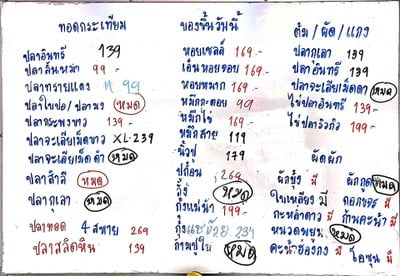 ทอดกระเทียม
ปลาอินทรี 139
ปลาลิ้นหมา 99 -
ปลาทรายแดง 99
ปลาใบปอ/ปลามง หมด
ปลากระพงขาว 139 -
ปลาจะละเม็ดขาว XL-239
ปลาจะละเม็ดดำ หมด
ปลาสำลี หมด
ปลากุเลา หมด
ปลาทอด 4 สหาย 269
ปลาสลิดหิน 139
ของขึ้นวันนี้
หอยเชลล์ 169.-
เอ็นหอยจอบ 169.-
หอยหมาก 169.-
หมึกกะตอย 99
หมึกไข่ 169.-
หมึกสาย 119
นิ้วปู 179
ปูก้อน 269
กั้ง หมด
กุ้งแม่น้ำ 199.-
กุ้งแชบ๊วย 239
ก้ามปูใบ้ หมด
ต้ม / ผัด / แกง
ปลากุเลา 139
ปลาอินทรี 139
ปลาจะละเม็ดดำ หมด
ไข่ปลาอินทรี 139-
ไข่ปลาริวกิว 199.-
ผัดผัก
ผักบุ้ง มี ผักกูด หมด
ใบเหลียง มี ดอกขจร มี
กะหล่ำดาว มี ก้านคะน้า มี
หน่อไม้ หมด
คะน้าฮ่องกง มี โอซุน มี